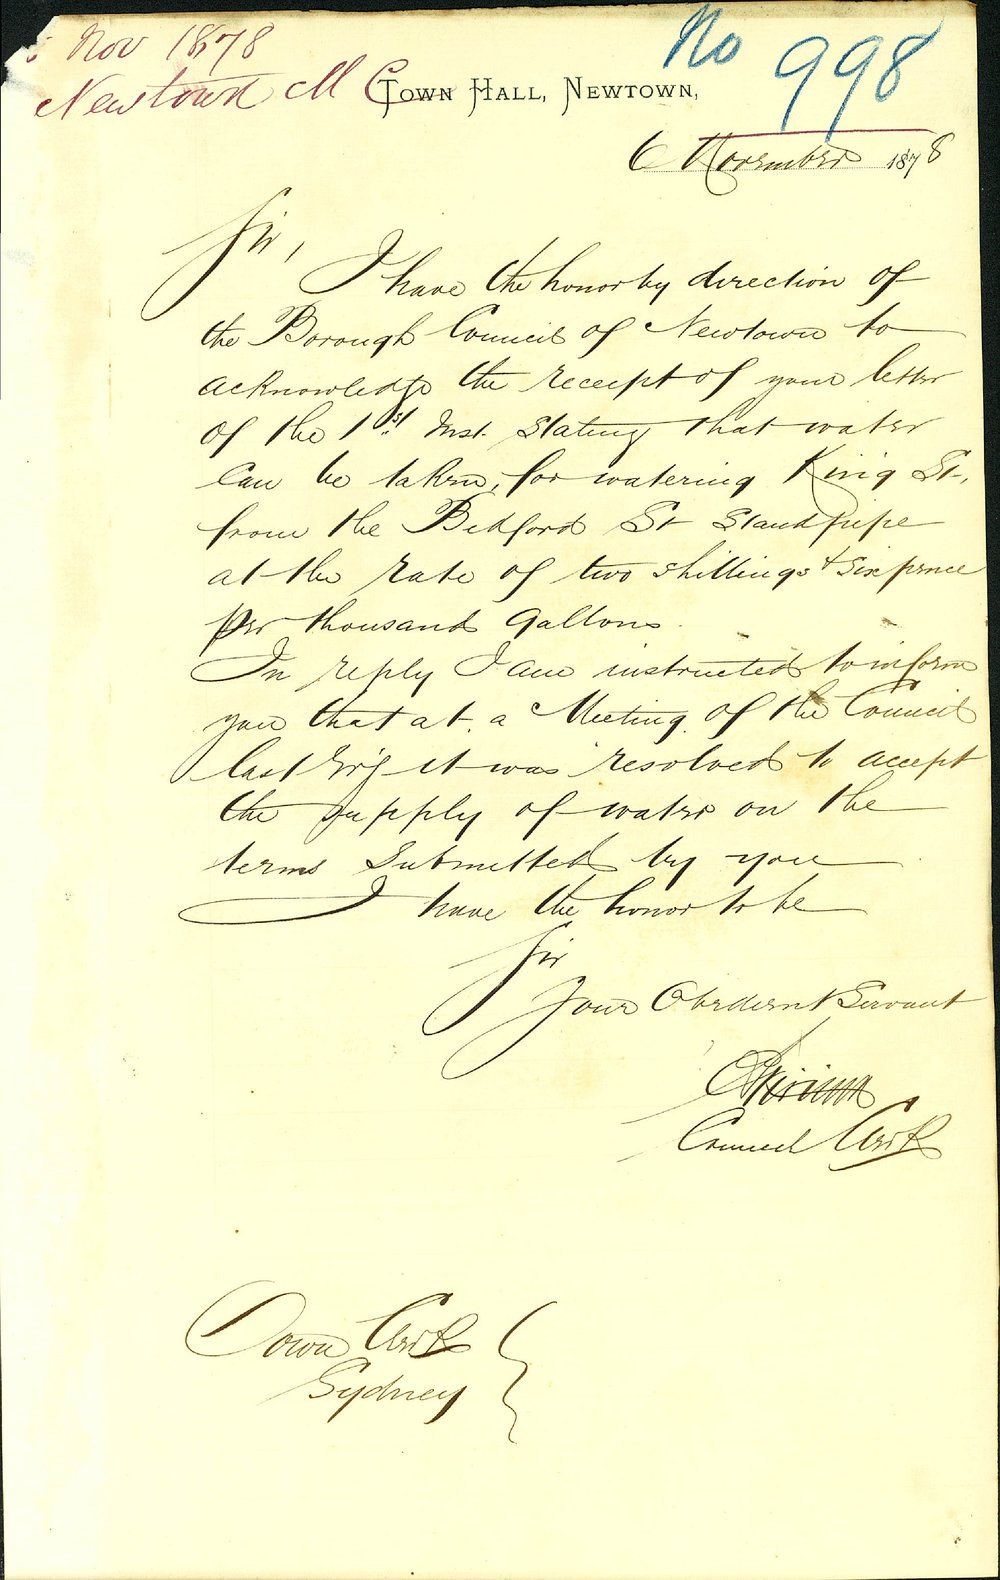 Nov 1878
Newtown M C
No 998
Town Hall, Newtown,
6 November 1878
Sir,
I have the honor by direction of
the Borough Council of Newtown to
acknowledge the receipt of your letter
of the 1st Inst. stating that water
can be taken, for watering King St.,
from the Bedford St Standpipe
at the rate of two shillings & sixpence
per thousand gallons.
In reply I am instructed to inform
you that at a Meeting of the Council
last Ev'g it was resolved to accept
the supply of water on the
terms submitted by you
I have the honor to be
Sir
Your Obedient Servant
Council Clerk
Town Clerk
Sydney